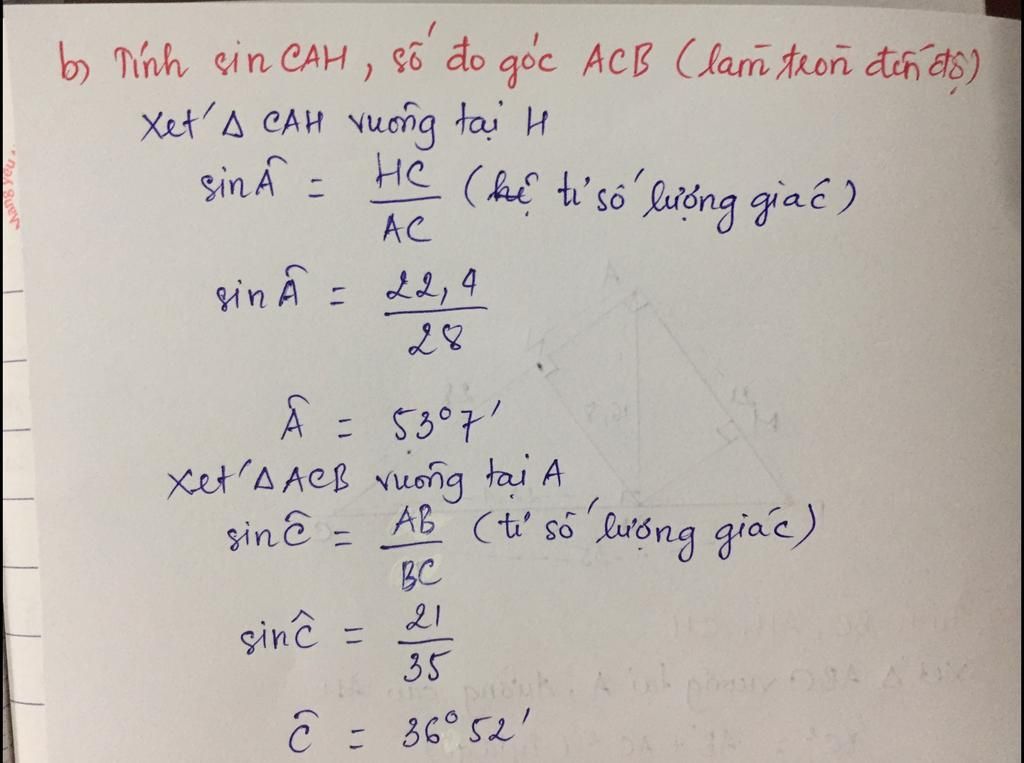 b) Tính sin CAH, số đo góc ACB (làm tròn đến độ)
Xét Δ CAH vuông tại H
sin Â = HC / AC (tỉ số lượng giác)
sin Â = 22,4 / 28
Â = 53°7'
Xét Δ ACB vuông tại A
sin Ĉ = AB / BC (tỉ số lượng giác)
sin Ĉ = 21 / 35
Ĉ = 36°52'